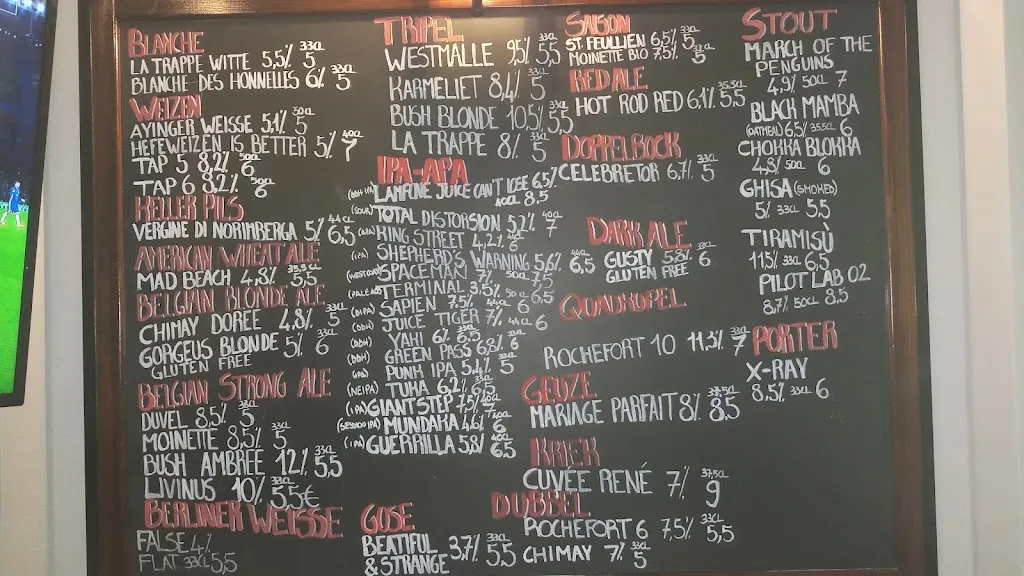 BLANCHE
LA TRAPPE WITTE 5.5% 33CL 5
BLANCHE DES HONNELLES 6% 33CL 5
WEIZEN
AYINGER WEISSE 5,1% 50CL 5
HEFEWEIZEN IS BETTER 5% 40CL 7
TAP 5 8,2% 50CL 6
TAP 6 8.2% 50CL 6
KELLER PILS
VERGINE DI NORIMBERGA 5% 44CL 6,5
AMERICAN WHEAT ALE
MAD BEACH 4,8% 35,5CL 5,5
BELGIAN BLONDE ALE
CHIMAY DOREE 4.8% 33CL 5
GORGEUS BLONDE 5% 33CL 6
GLUTEN FREE
BELGIAN STRONG ALE
DUVEL 8.5% 33CL 5
MOINETTE 8,5% 33CL 5
BUSH AMBREE 12% 33CL 5.5
LIVINUS 10% 33CL 5.5€
BERLINER WEISSE
FALSE 4%
FLAT 33CL 5,5
TRIPEL
WESTMALLE 9,5% 33CL 5,5
KARMELIET 8,4% 33CL 5
BUSH BLONDE 10.5% 33CL 5,5
LA TRAPPE 8% 33CL 5
IPA-APA
LAMPONE JUICE CAN'T LOSE 6,5%
40CL 8.5
(SOUR) TOTAL DISTORSION 5.2% 40CL 7
(APA) KING STREET 4,2% 6
(IPA) SHEPHERD'S WARNING 5,6% 44CL 6,5
(WESTCOAST) SPACEMAN 7% 50CL 7
(PALE ALE) TERMINAL 3,5% 50CL 6.5
(DIPA) SAPIEN 7.5% 44CL 6
(DDH) JUICE TIGER 7% 44CL 6
(DDH) YAHI 6% 6.5
(DDH) GREEN PASS 6,8% 6
(IPA) PUNK IPA 5.4% 5
(NEIPA) TUKA 6.2%
(IPA) GIANT STEP 7,5% 7
(SESSION IPA) MUNDAKA 4.6% 6
(IPA) GUERRILLA 5,8% 40CL 6.5
GOSE
BEATIFUL & STRANGE 3,7% 33CL 5.5
SAISON
ST. FEULLIEN 6,5% 33CL 5
MOINETTE BIO 7,5% 33CL 5
RED ALE
HOT ROD RED 6.1% 35.5CL 5.5
DOPPELBOCK
CELEBRETOR 6.7% 33CL 5
DARK ALE
GUSTY 5.8% 33CL 6
GLUTEN FREE
QUADRUPEL
ROCHEFORT 10 11,3% 33CL 7
GEUZE
MARIAGE PARFAIT 8% 37.5CL 8.5
KRIEK
CUVÉE RENÉ 7% 37,5CL 9
DUBBEL
ROCHEFORT 6 7,5% 33CL 5,5
CHIMAY 7% 33CL 5
STOUT
MARCH OF THE
PENGUINS
4,9% 50CL 7
BLACK MAMBA
(OATMEAL) 6.5% 35.5CL 6
CHOKKA BLOKKA
4,8% 50CL 6
GHISA (SMOKED)
5% 33CL 5.5
TIRAMISÙ
11.5% 33CL 6.5
PILOT LAB 02
8.7% 50CL 8.5
PORTER
X-RAY
8.5% 33CL 6